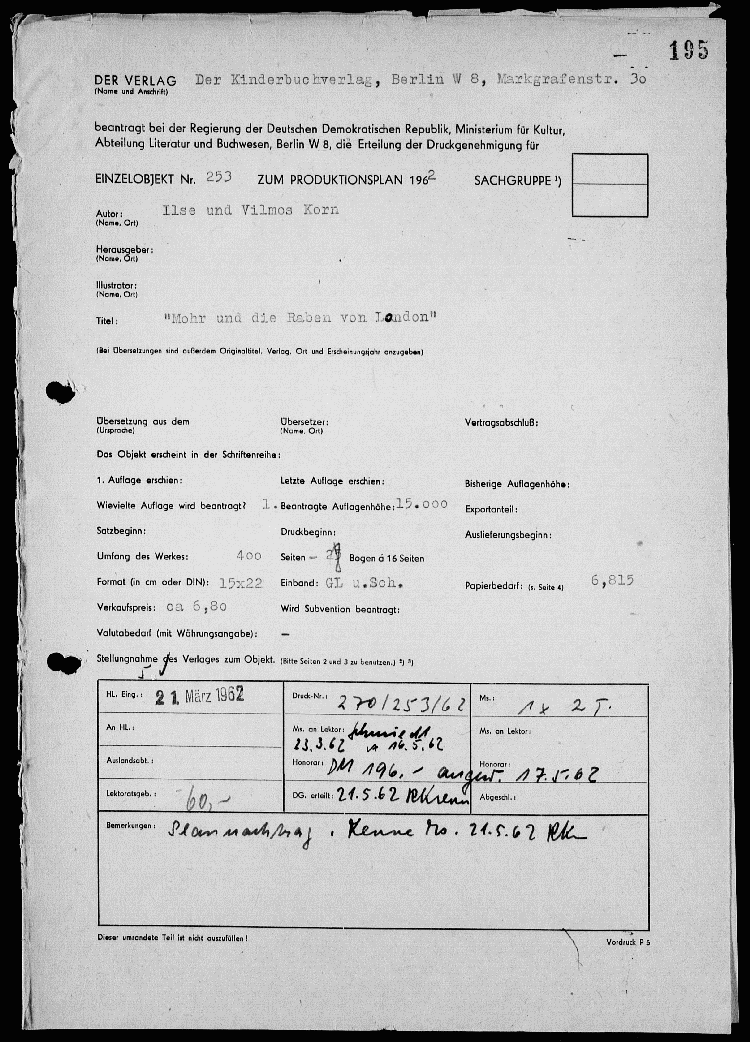 195
DER VERLAG Der Kinderbuchverlag, Berlin W 8, Markgrafenstr. 30
(Name und Anschrift)
beantragt bei der Regierung der Deutschen Demokratischen Republik, Ministerium für Kultur,
Abteilung Literatur und Buchwesen, Berlin W 8, die Erteilung der Druckgenehmigung für
EINZELOBJEKT Nr. 253 ZUM PRODUKTIONSPLAN 1962 SACHGRUPPE ¹)
Autor: Ilse und Vilmos Korn
(Name, Ort)
Herausgeber:
(Name, Ort)
Illustrator:
(Name, Ort)
Titel: "Mohr und die Raben von London"
(Bei Übersetzungen sind außerdem Originaltitel, Verlag, Ort und Erscheinungsjahr anzugeben)
Übersetzung aus dem Übersetzer: Vertragsabschluß:
(Ursprache) (Name, Ort)
Das Objekt erscheint in der Schriftenreihe:
1. Auflage erschien: Letzte Auflage erschien: Bisherige Auflagenhöhe:
Wievielte Auflage wird beantragt? 1. Beantragte Auflagenhöhe: 15.000 Exportanteil:
Satzbeginn: Druckbeginn: Auslieferungsbeginn:
Umfang des Werkes: 400 Seiten — Bogen à 16 Seiten
Format (in cm oder DIN): 15x22 Einband: GL u.Sch. Papierbedarf: (s. Seite 4) 6,815
Verkaufspreis: ca 6,80 Wird Subvention beantragt:
Valutabedarf (mit Währungsangabe): —
Stellungnahme des Verlages zum Objekt. (Bitte Seiten 2 und 3 zu benutzen.) ²) ³)
HL. Eing.: 21. März 1962 Druck-Nr.: 270/253/62 Ms.: 1x 2 T.
An HL.: Ms. an Lektor: Schmiedt Ms. an Lektor:
23.3.62 16.5.62
Auslandsabt.: Honorar: DM 196,- angew. 17.5.62 Honorar:
Lektoratsgeb.: 60,- DG. erteilt: 21.5.62 Abgeschl.:
Bemerkungen: Plannachtrag. Kenne Ms. 21.5.62
Dieser umrandete Teil ist nicht auszufüllen! Vordruck P 5